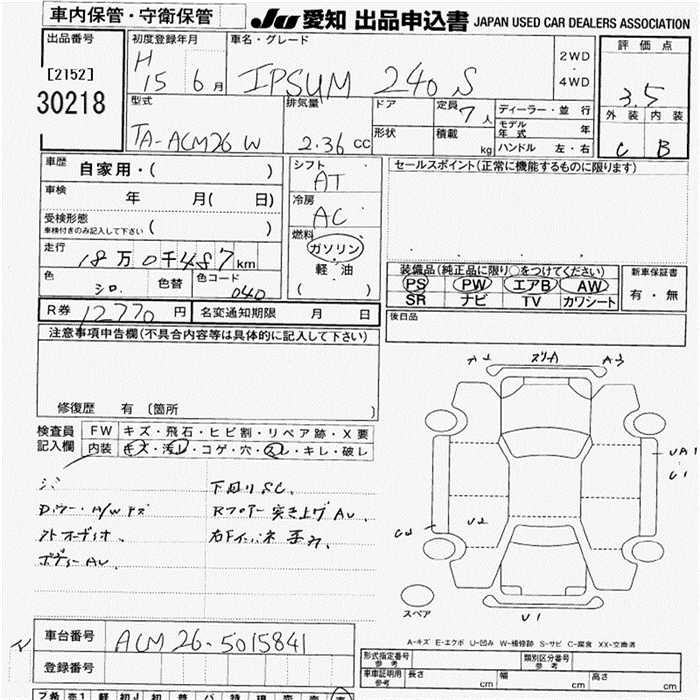 車内保管・守衛保管
JU 愛知 出品申込書 JAPAN USED CAR DEALERS ASSOCIATION
出品番号
[2152]
30218
初度登録年月
H 15 6 月
車名・グレード
IPSUM 240 S
2WD
・
4WD
評価点
3.5
外装 内装
C B
型式
TA-ACM26W
排気量
2.36 CC
ドア
形状
定員 7 人
積載 kg
ディーラー・並行
モデル年式 年
ハンドル 左・右
車歴
自家用・( )
車検
年 月( 日)
受検形態
車検付きのみ記入して下さい ( )
走行
18万0千487km
色 シロ. 色替 色コード 040
シフト
AT
冷房
AC
燃料
ガソリン
軽・油
( . )
セールスポイント(正常に機能するものに限ります)
装備品(純正品に限り○をつけてください)
PS PW エアB AW
SR ナビ TV カワシート
新車保証書
有・無
R券 12770 円 名変通知期限 月 日
後日品
注意事項申告欄(不具合内容等は具体的に記入して下さい)
修復歴 有 〔箇所 〕
検査員記入欄
FW キズ・飛石・ヒビ割・リペア跡・X要
内装 キズ・汚レ・コゲ・穴・スレ・キレ・破レ
下回りSC.
Rフロアー突き上げAU.
A2 A3
UA1
C1
U2
U1
スペア
A-キズ E-エクボ U-凹み W-補修跡 S-サビ C-腐食 XX-交換済
車台番号 ACM26-5015841
登録番号
形式指定番号 参考 類別区分番号 参考
車車証明用 参考 長さ cm 幅 cm 高さ cm